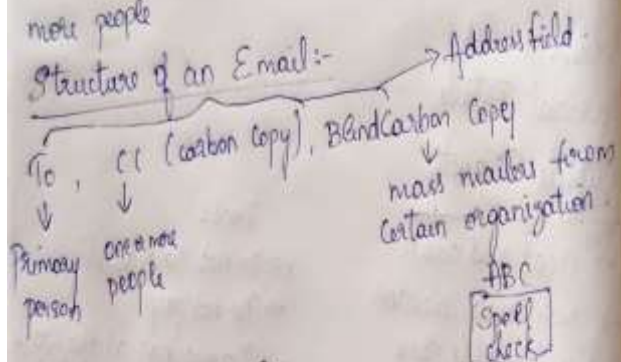 more people
Structure of an Email:- → Address field.
To, CC (carbon copy), Blind Carbon Copy
↓ ↓ ↓
Primary person
one or more people
mass mailers from certain organization.
ABC
Spell check